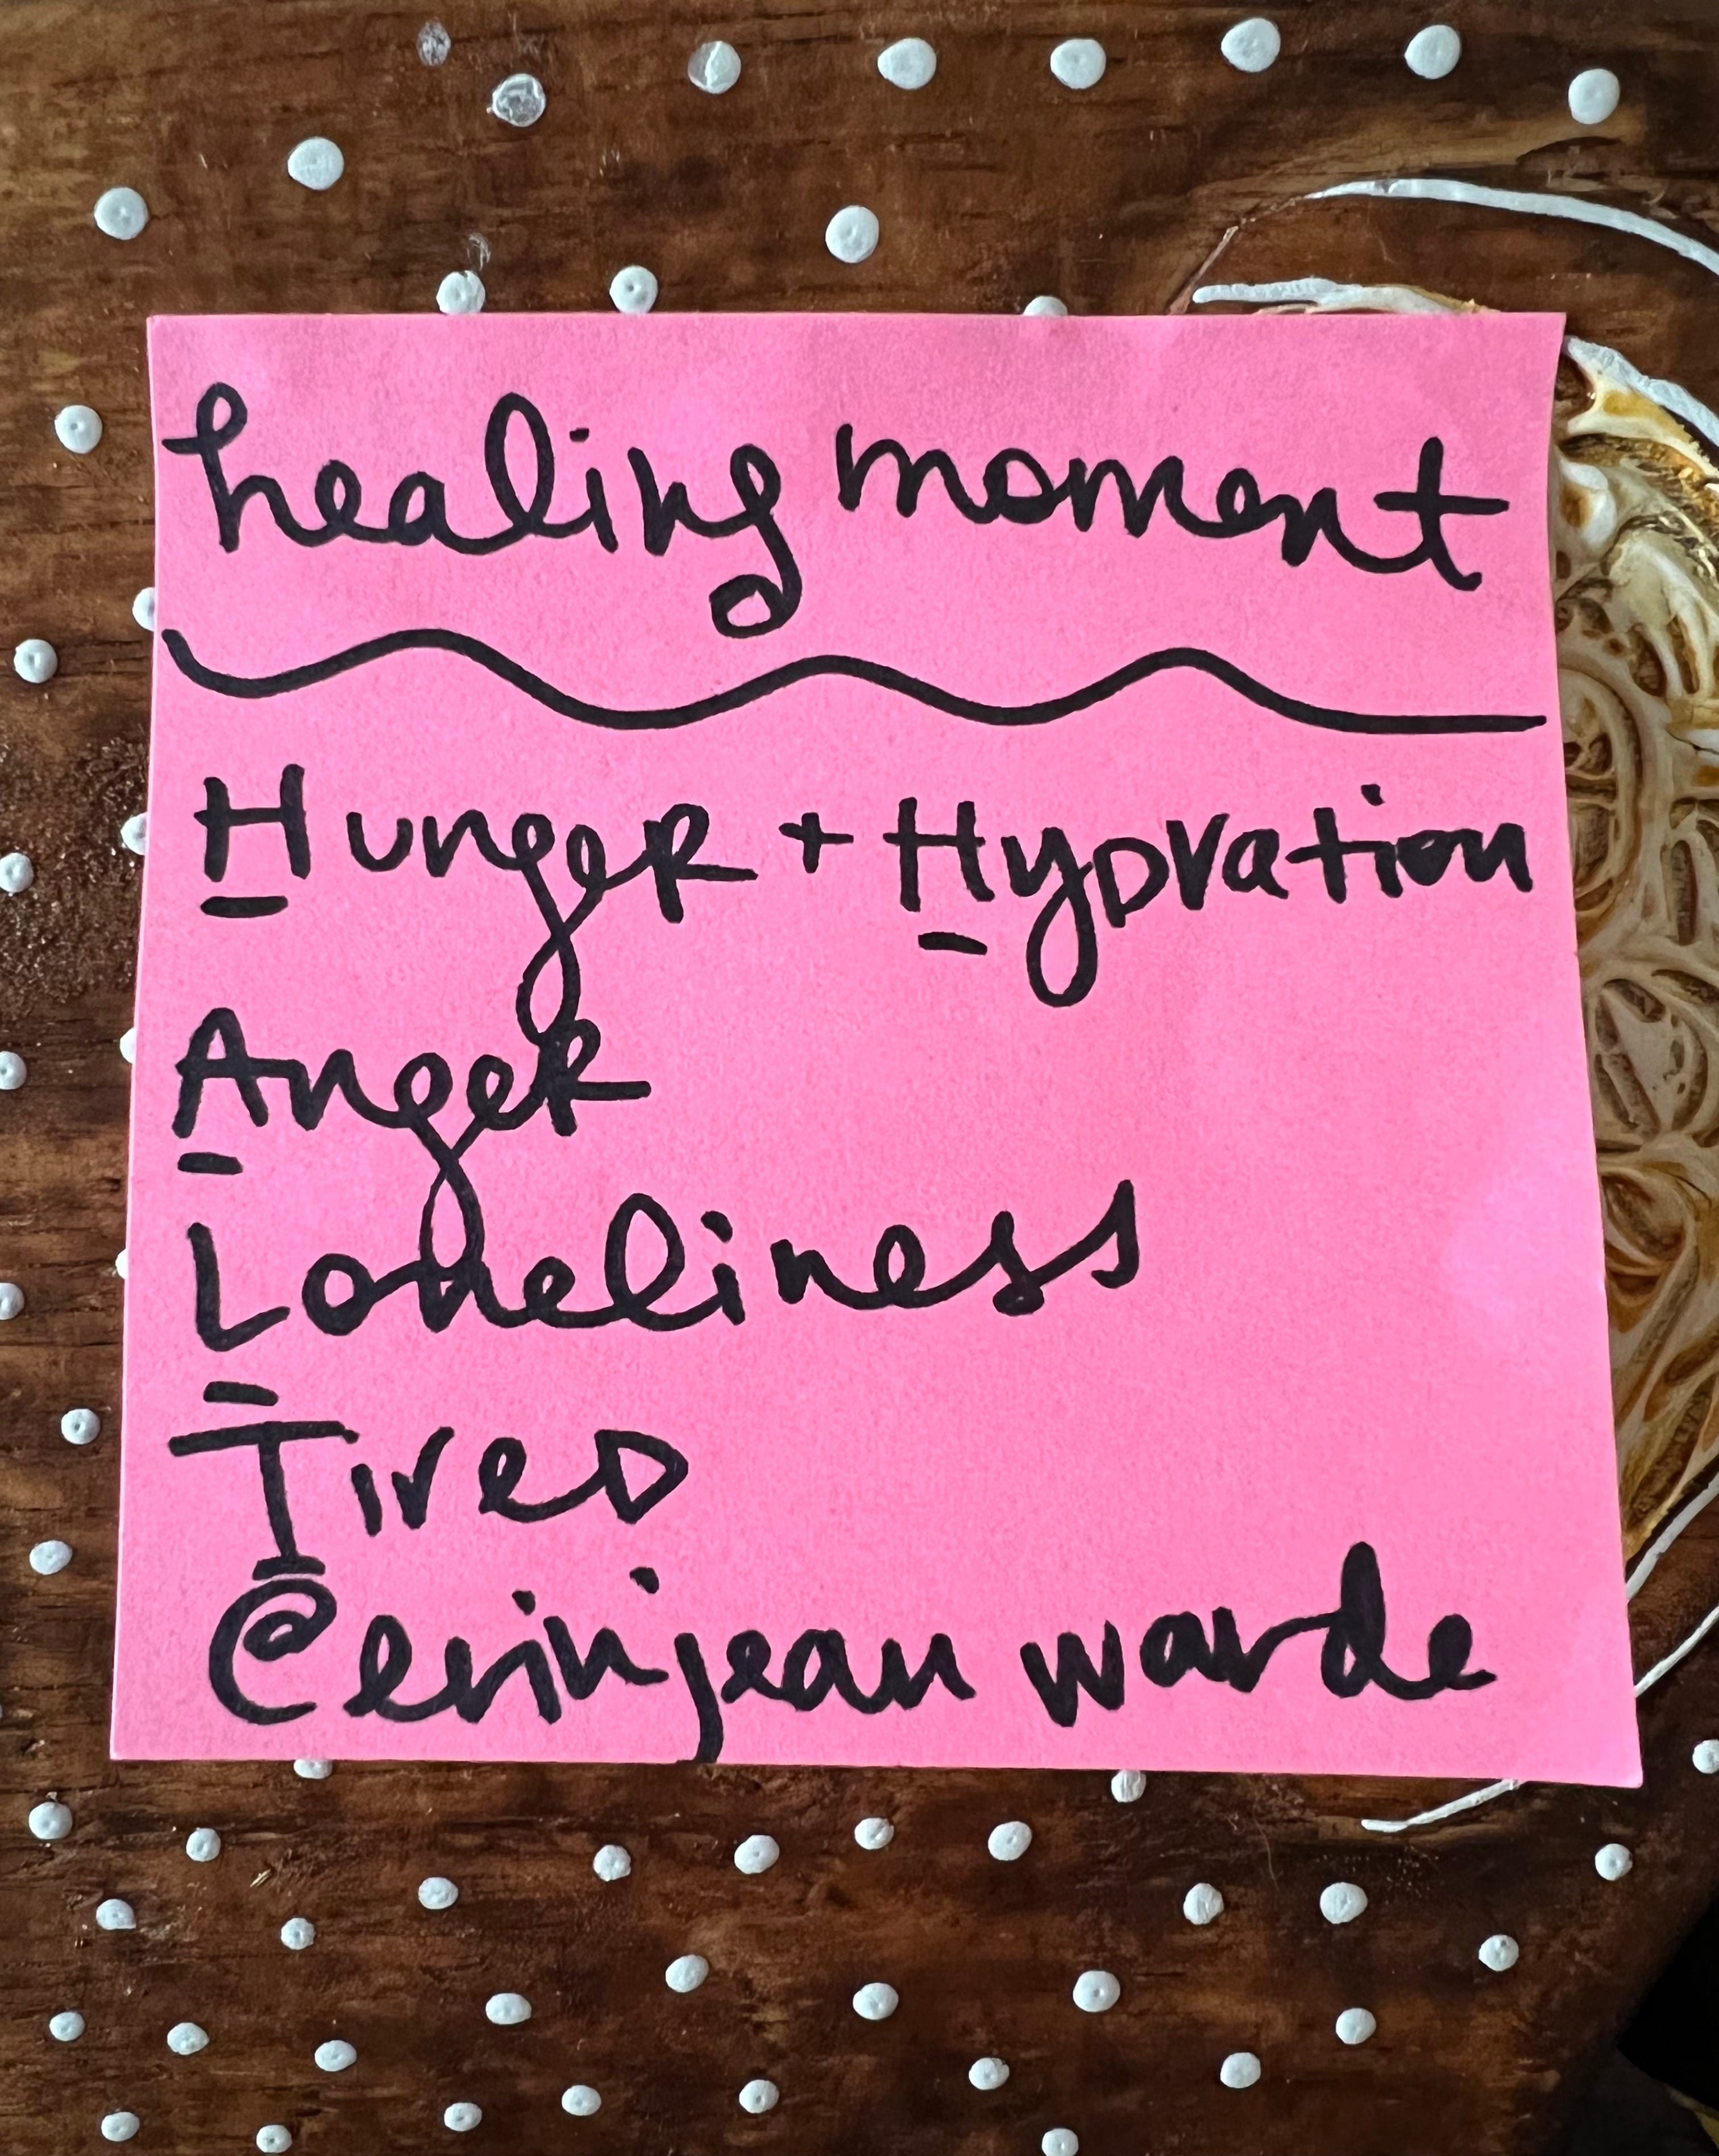 healing moment
Hunger + Hydration
Anger
Loneliness
Tired
@erinjean warde